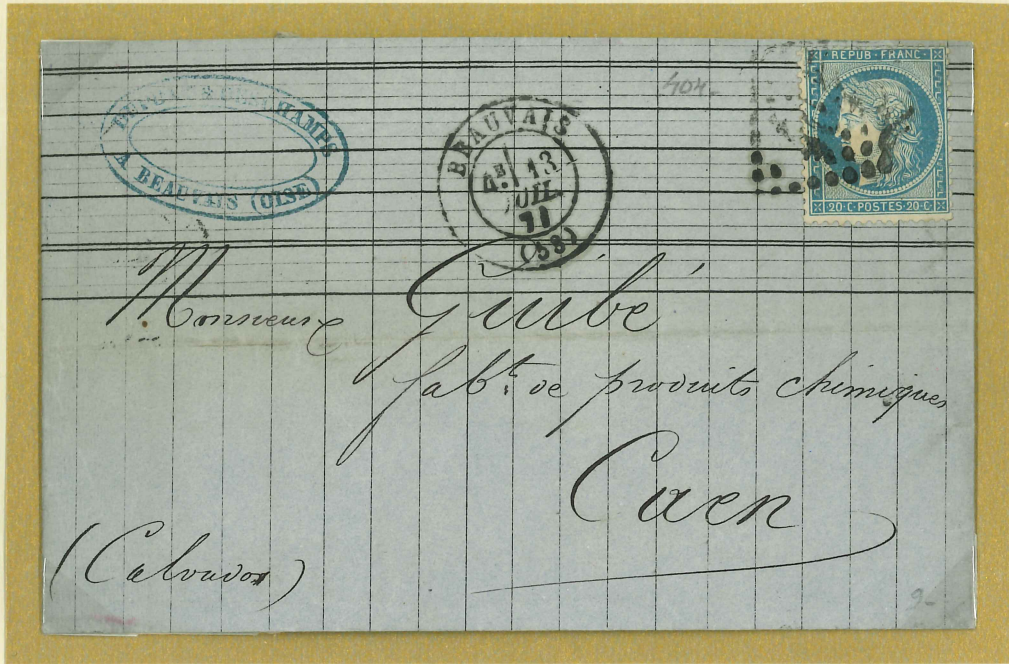 A BEAUVAIS (OISE)
BEAUVAIS
13
JUIL.
71
(58)
404-
· REPUB · FRANC ·
20 · C · POSTES · 20 · C ·
Monsieur Guibé
fabt. de produits chimiques
Caen
(Calvados)
9-